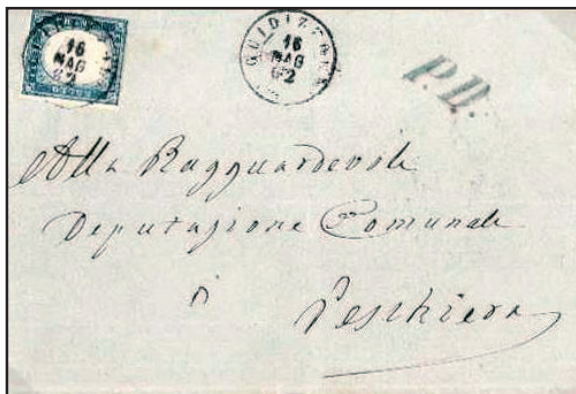 16
MAG
62
GUIDIZZOLO
16
MAG
62
P.D.
Alla Ragguardevole
Deputazione Comunale
à
Peschiera